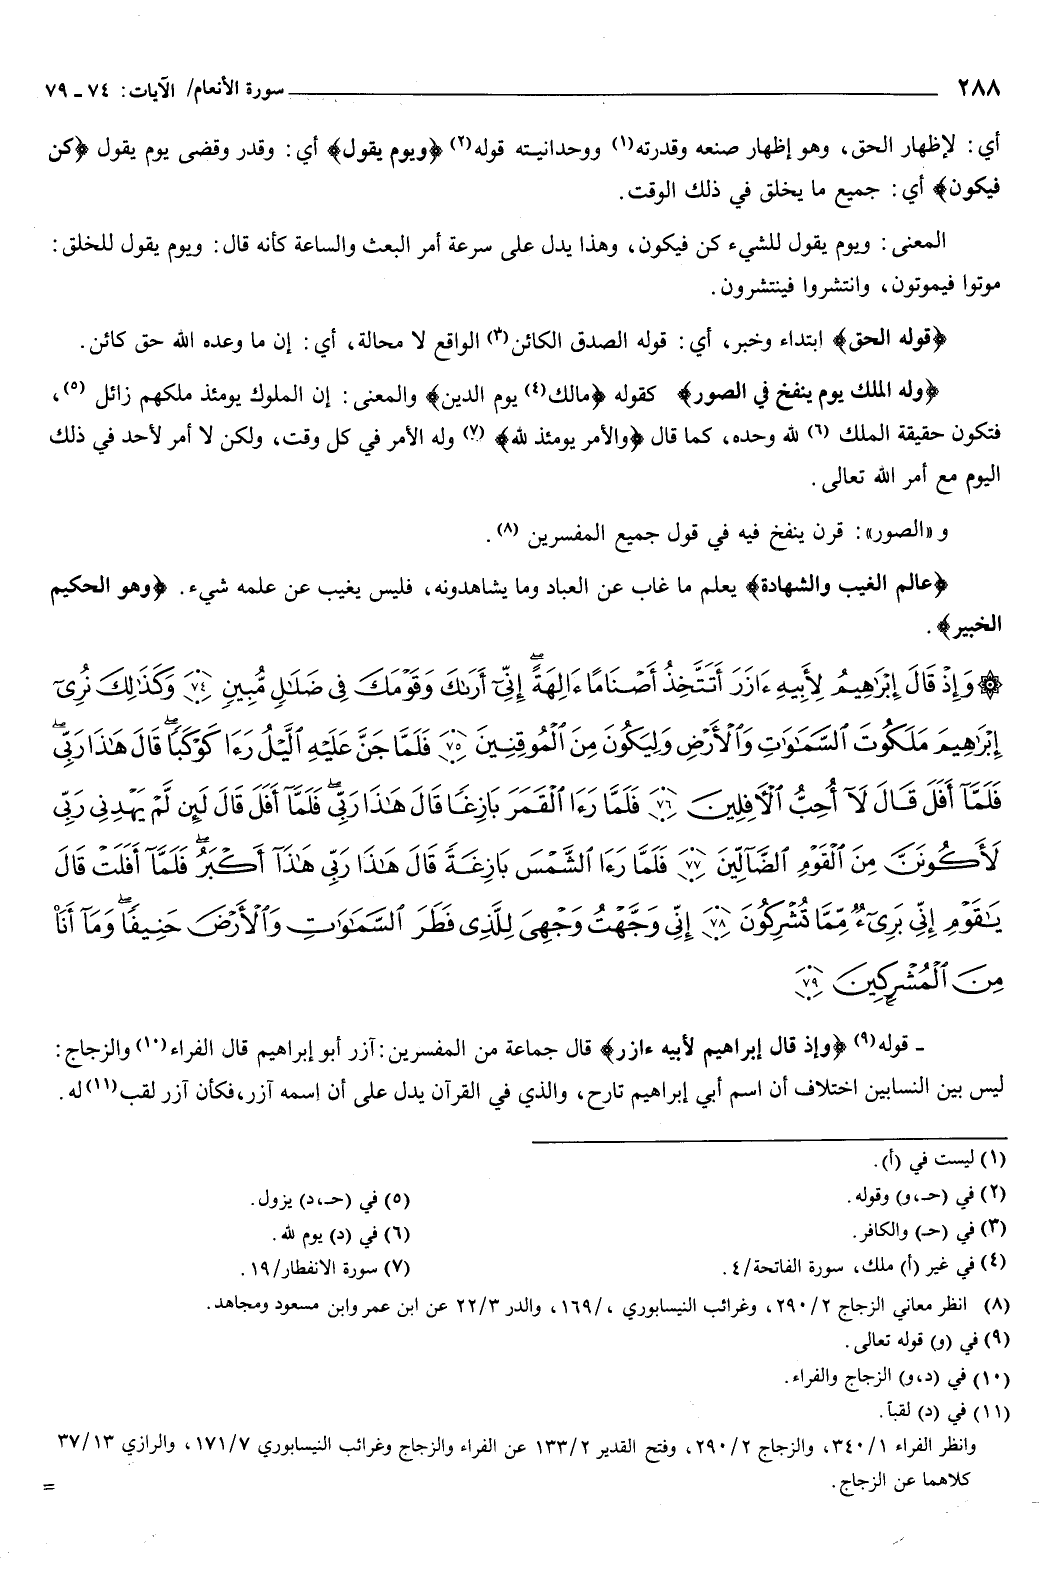 ٢٨٨ سورة الأنعام/ الآيات: ٧٤ - ٧٩
أي: لإظهار الحق، وهو إظهار صنعه وقدرته(١) ووحدانيته قوله(٢) ﴿ويوم يقول﴾ أي: وقدر وقضى يوم يقول ﴿كن
فيكون﴾ أي: جميع ما يخلق في ذلك الوقت.
المعنى: ويوم يقول للشيء كن فيكون، وهذا يدل على سرعة أمر البعث والساعة كأنه قال: ويوم يقول للخلق:
موتوا فيموتون، وانتشروا فينتشرون.
﴿قوله الحق﴾ ابتداء وخبر، أي: قوله الصدق الكائن(٣) الواقع لا محالة، أي: إن ما وعده الله حق كائن.
﴿وله الملك يوم ينفخ في الصور﴾ كقوله ﴿مالك(٤) يوم الدين﴾ والمعنى: إن الملوك يومئذ ملكهم زائل (٥)،
فتكون حقيقة الملك (٦) لله وحده، كما قال ﴿والأمر يومئذ لله﴾ (٧) وله الأمر في كل وقت، ولكن لا أمر لأحد في ذلك
اليوم مع أمر الله تعالى.
و «الصور»: قرن ينفخ فيه في قول جميع المفسرين (٨).
﴿عالم الغيب والشهادة﴾ يعلم ما غاب عن العباد وما يشاهدونه، فليس يغيب عن علمه شيء. ﴿وهو الحكيم
الخبير﴾.
۞ وَإِذْ قَالَ إِبْرَٰهِيمُ لِأَبِيهِ ءَازَرَ أَتَتَّخِذُ أَصْنَامًا ءَالِهَةً ۖ إِنِّىٓ أَرَىٰكَ وَقَوْمَكَ فِى ضَلَٰلٍ مُّبِينٍ ٧٤ وَكَذَٰلِكَ نُرِىٓ
إِبْرَٰهِيمَ مَلَكُوتَ ٱلسَّمَٰوَٰتِ وَٱلْأَرْضِ وَلِيَكُونَ مِنَ ٱلْمُوقِنِينَ ٧٥ فَلَمَّا جَنَّ عَلَيْهِ ٱلَّيْلُ رَءَا كَوْكَبًا ۖ قَالَ هَٰذَا رَبِّى ۖ
فَلَمَّآ أَفَلَ قَالَ لَآ أُحِبُّ ٱلْآفِلِينَ ٧٦ فَلَمَّا رَءَا ٱلْقَمَرَ بَازِغًا قَالَ هَٰذَا رَبِّى ۖ فَلَمَّآ أَفَلَ قَالَ لَئِن لَّمْ يَهْدِنِى رَبِّى
لَأَكُونَنَّ مِنَ ٱلْقَوْمِ ٱلضَّآلِّينَ ٧٧ فَلَمَّا رَءَا ٱلشَّمْسَ بَازِغَةً قَالَ هَٰذَا رَبِّى هَٰذَآ أَكْبَرُ ۖ فَلَمَّآ أَفَلَتْ قَالَ
يَٰقَوْمِ إِنِّى بَرِىٓءٌ مِّمَّا تُشْرِكُونَ ٧٨ إِنِّى وَجَّهْتُ وَجْهِىَ لِلَّذِى فَطَرَ ٱلسَّمَٰوَٰتِ وَٱلْأَرْضَ حَنِيفًا ۖ وَمَآ أَنَا۠
مِنَ ٱلْمُشْرِكِينَ ٧٩
- قوله(٩) ﴿وإذ قال إبراهيم لأبيه ءازر﴾ قال جماعة من المفسرين: آزر أبو إبراهيم قال الفراء(١٠) والزجاج:
ليس بين النسابين اختلاف أن اسم أبي إبراهيم تارح، والذي في القرآن يدل على أن إسمه آزر، فكأن آزر لقب(١١) له.
(١) ليست في (أ).
(٢) في (حـ، و) وقوله. (٥) في (حـ، د) يزول.
(٣) في (حـ) والكافر. (٦) في (د) يوم لله.
(٤) في غير (أ) ملك، سورة الفاتحة/٤. (٧) سورة الانفطار/١٩.
(٨) انظر معاني الزجاج ٢٩٠/٢، وغرائب النيسابوري ،/١٦٩، والدر ٢٢/٣ عن ابن عمر وابن مسعود ومجاهد.
(٩) في (و) قوله تعالى.
(١٠) في (د، و) الزجاج والفراء.
(١١) في (د) لقباً.
وانظر الفراء ٣٤٠/١، والزجاج ٢٩٠/٢، وفتح القدير ١٣٣/٢ عن الفراء والزجاج وغرائب النيسابوري ١٧١/٧، والرازي ٣٧/١٣
كلاهما عن الزجاج. =